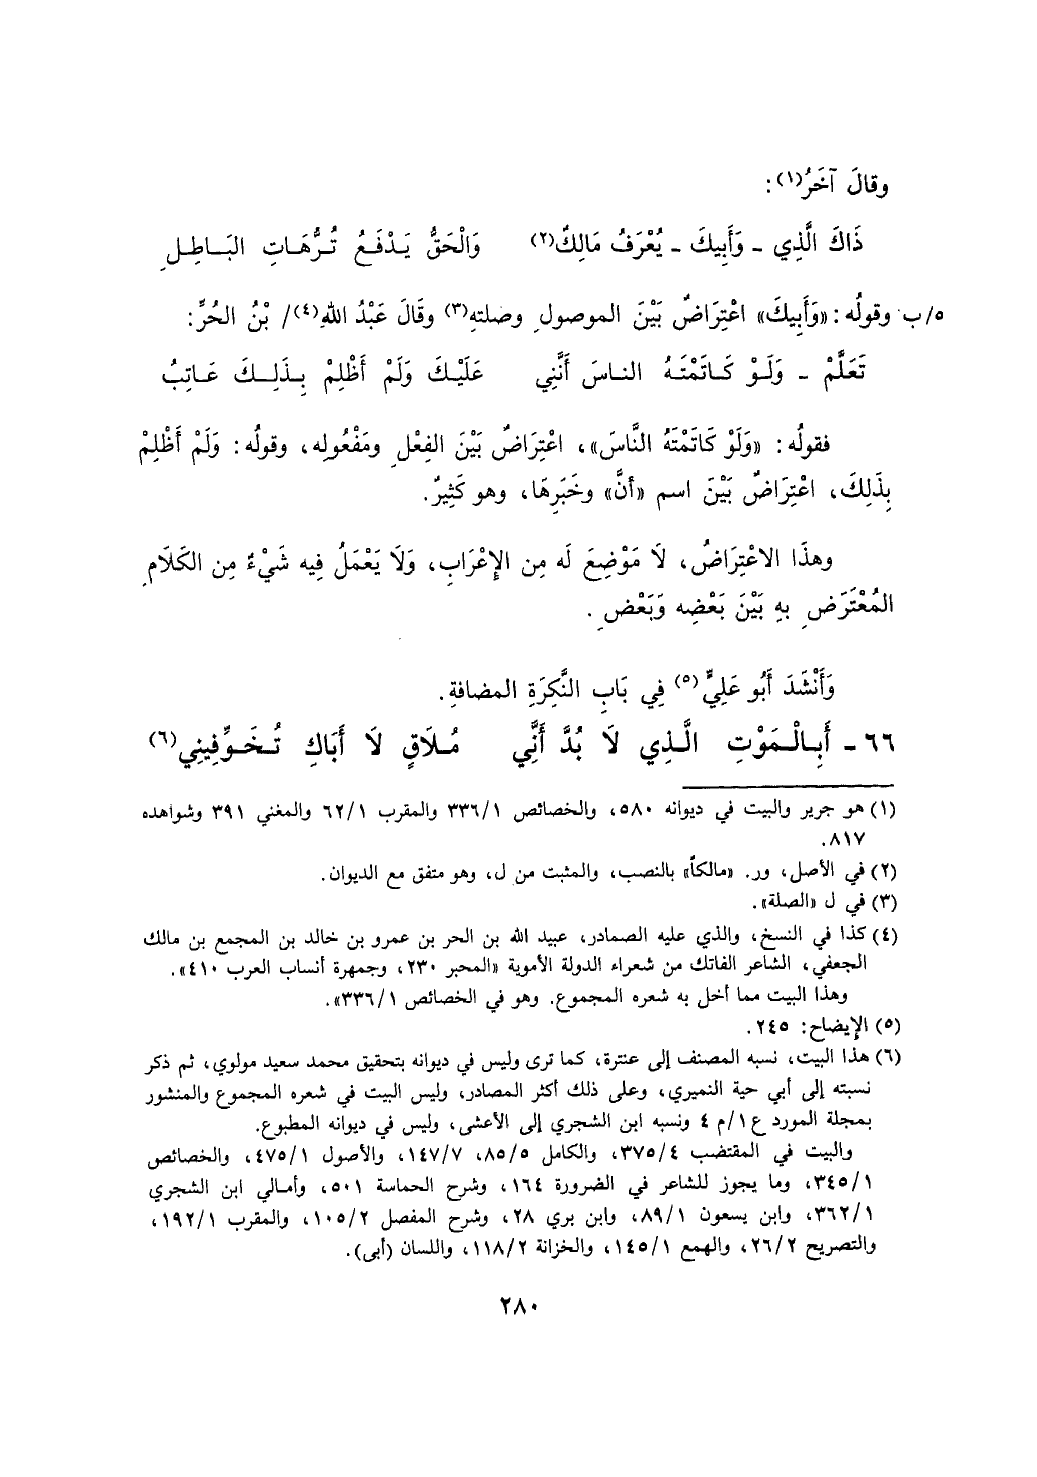 وقالَ آخَرُ(١):
ذَاكَ الَّذِي - وَأَبِيكَ - يُعْرَفُ مَالِكٌ(٢) وَالْحَقُّ يَدْفَعُ تُرَّهَاتِ البَاطِلِ
٥/ب وقولُه: «وَأَبِيكَ» اعْتِرَاضٌ بَيْنَ الموصولِ وصلتهِ(٣) وقَالَ عَبْدُ اللهِ(٤)/ بْنُ الحُرِّ:
تَعَلَّمْ - وَلَوْ كَاتَمْتَهُ الناسَ أَنَّنِي عَلَيْكَ وَلَمْ أَظْلِمْ بِذَلِكَ عَاتِبُ
فقولُه: «وَلَوْ كَاتَمْتَهُ النَّاسَ»، اعْتِرَاضٌ بَيْنَ الفِعْلِ ومَفْعُولِه، وقولُه: وَلَمْ أَظْلِمْ
بِذَلِكَ، اعْتِرَاضٌ بَيْنَ اسم «أنَّ» وخَبَرِهَا، وهو كَثِيرٌ.
وهذَا الاعْتِرَاضُ، لَا مَوْضِعَ لَه مِن الإِعْرَابِ، وَلَا يَعْمَلُ فِيه شَيْءٌ مِن الكَلَامِ
المُعْتَرَضِ بِهِ بَيْنَ بَعْضِه وَبَعْضٍ.
وَأَنْشَدَ أَبُو عَلِيٍّ(٥) فِي بَابِ النَّكِرَةِ المضافةِ.
٦٦ - أَبِالْمَوْتِ الَّذِي لَا بُدَّ أَنَّي مُلَاقٍ لَا أَبَاكِ تُخَوِّفِينِي(٦)
(١) هو جرير والبيت في ديوانه ٥٨٠، والخصائص ٣٣٦/١ والمقرب ٦٢/١ والمغني ٣٩١ وشواهده
٨١٧.
(٢) في الأصل، ور. «مالكاً» بالنصب، والمثبت من ل، وهو متفق مع الديوان.
(٣) في ل «الصلة».
(٤) كذا في النسخ، والذي عليه الصمادر، عبيد الله بن الحر بن عمرو بن خالد بن المجمع بن مالك
الجعفي، الشاعر الفاتك من شعراء الدولة الأموية «المحبر ٢٣٠، وجمهرة أنساب العرب ٤١٠».
وهذا البيت مما أخل به شعره المجموع. وهو في الخصائص ٣٣٦/١».
(٥) الإيضاح: ٢٤٥.
(٦) هذا البيت، نسبه المصنف إلى عنترة، كما ترى وليس في ديوانه بتحقيق محمد سعيد مولوي، ثم ذكر
نسبته إلى أبي حية النميري، وعلى ذلك أكثر المصادر، وليس البيت في شعره المجموع والمنشور
بمجلة المورد ع ١/م ٤ ونسبه ابن الشجري إلى الأعشى، وليس في ديوانه المطبوع.
والبيت في المقتضب ٣٧٥/٤، والكامل ٨٥/٥، ١٤٧/٧، والأصول ٤٧٥/١، والخصائص
٣٤٥/١، وما يجوز للشاعر في الضرورة ١٦٤، وشرح الحماسة ٥٠١، وأمالي ابن الشجري
٣٦٢/١، وابن يسعون ٨٩/١، وابن بري ٢٨، وشرح المفصل ١٠٥/٢، والمقرب ١٩٢/١،
والتصريح ٢٦/٢، والهمع ١٤٥/١، والخزانة ١١٨/٢، واللسان (أبى).
٢٨٠